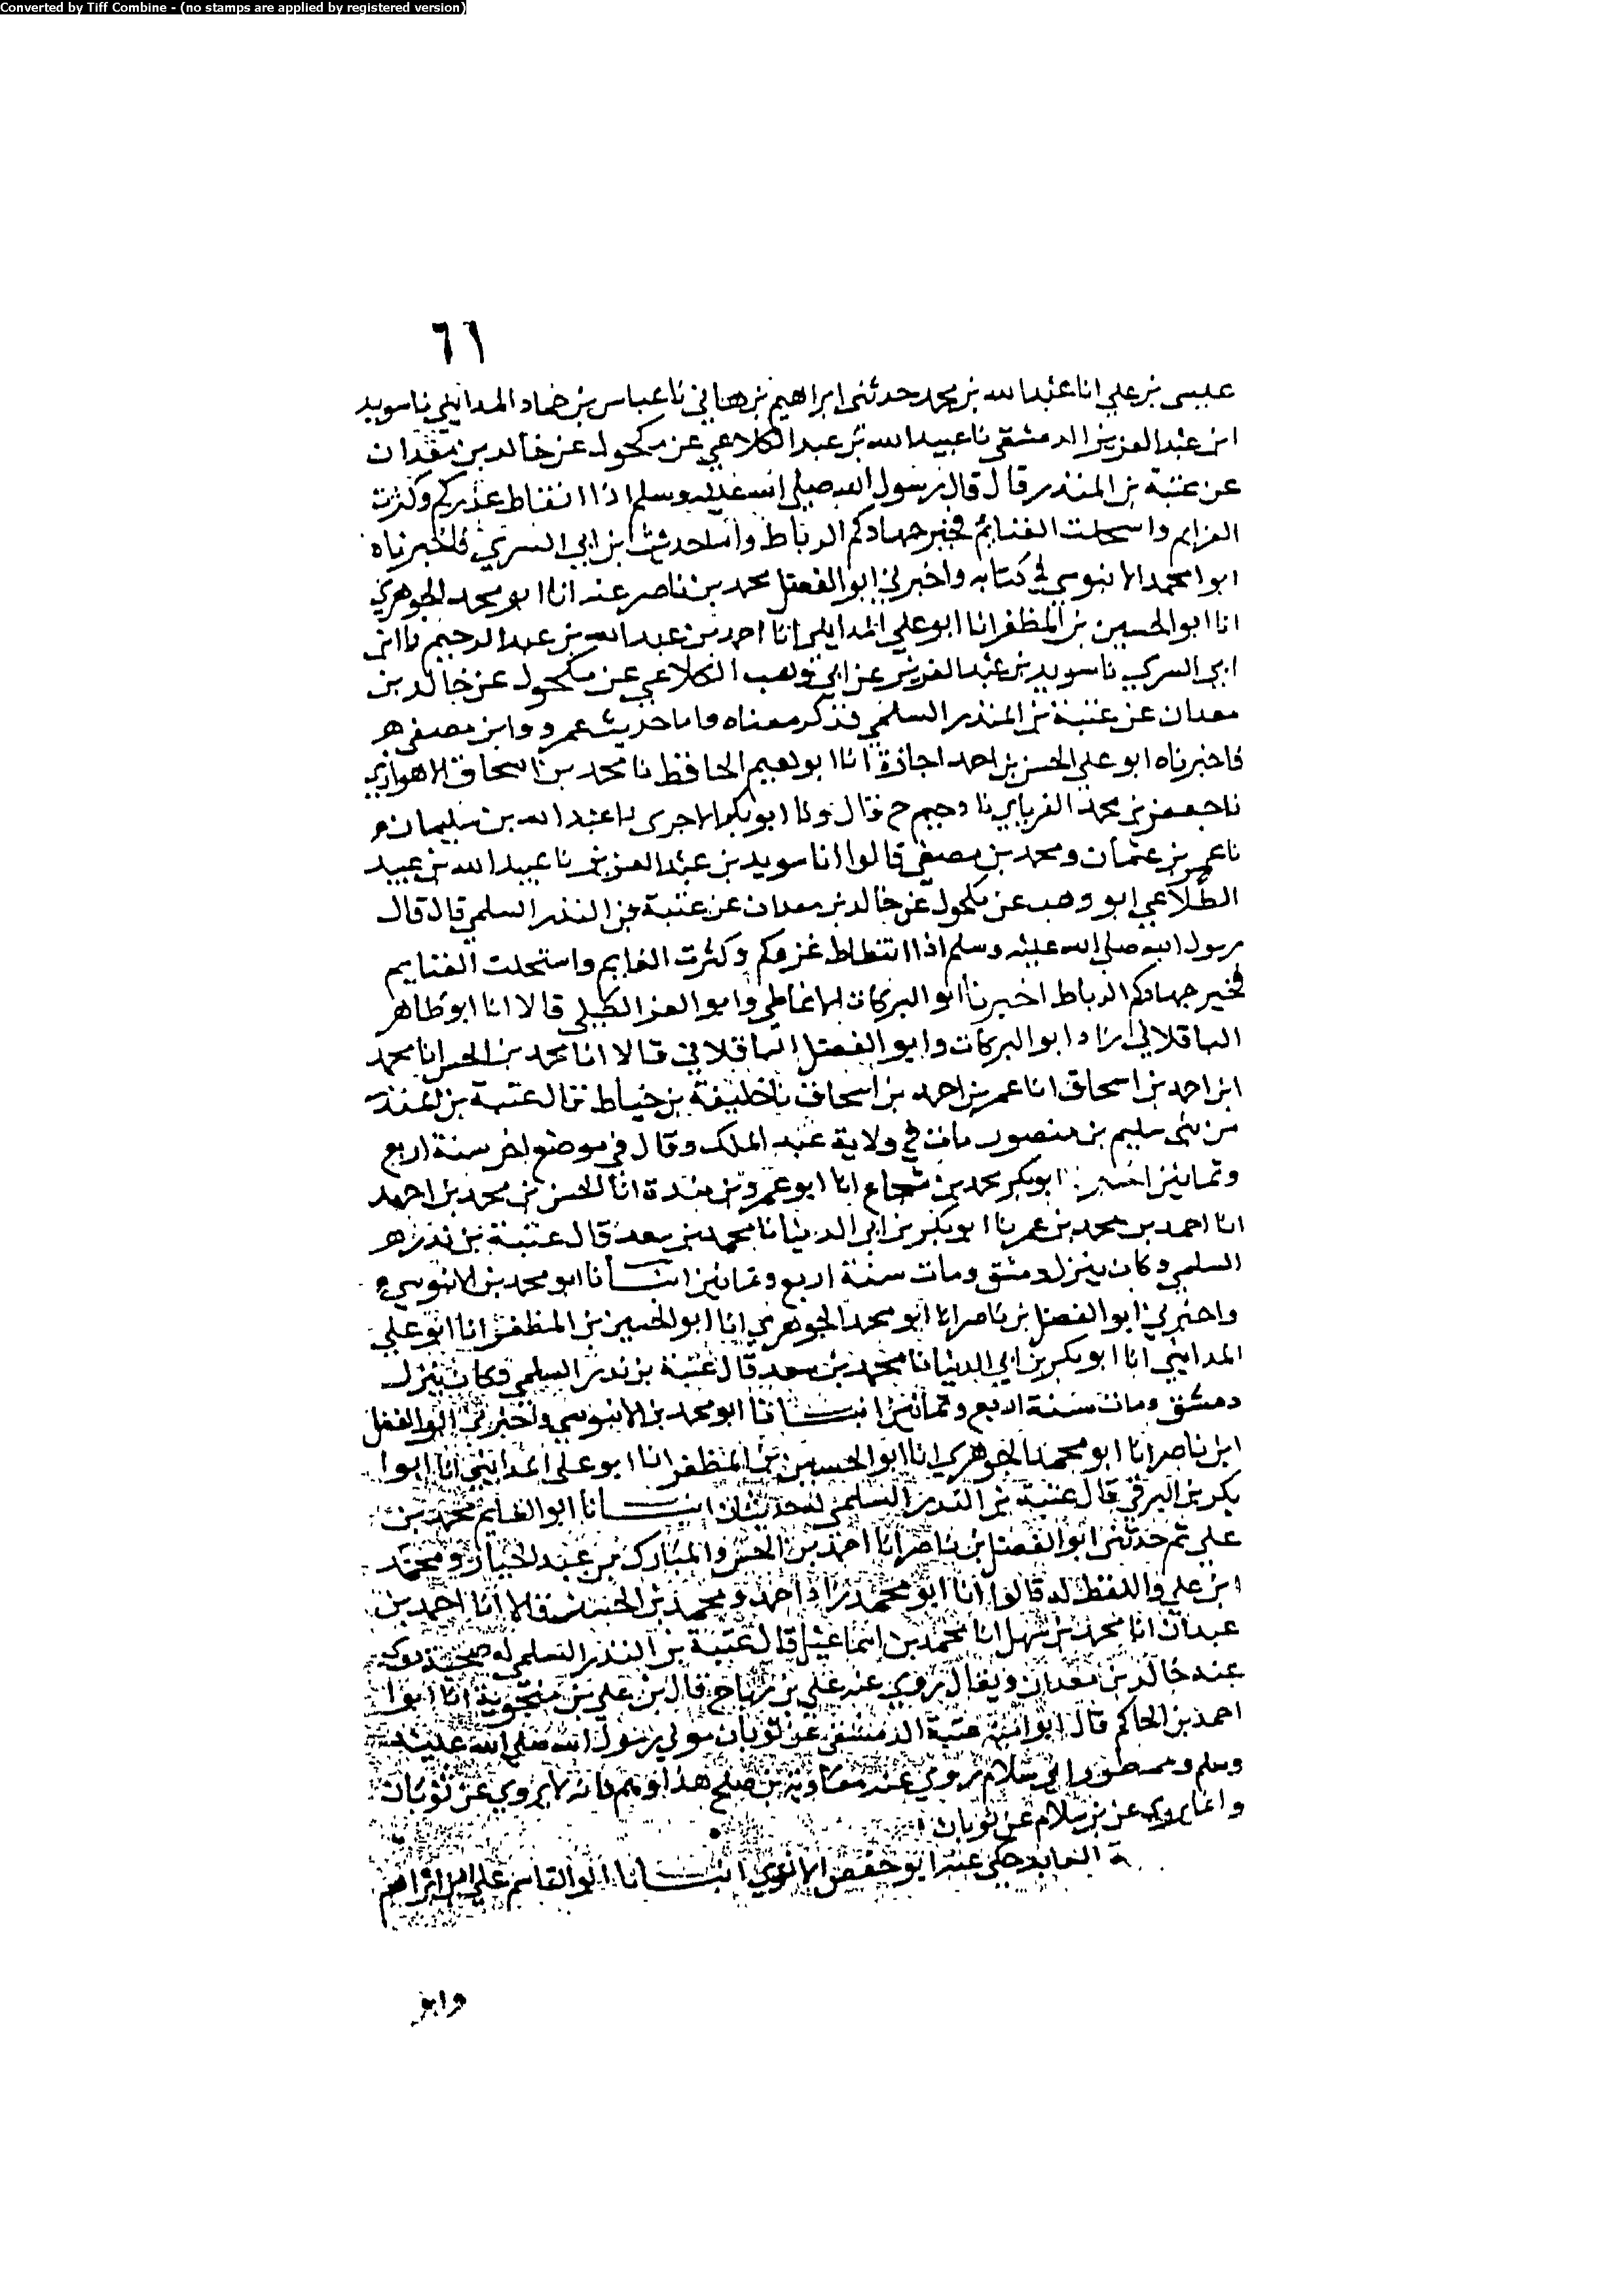 Converted by Tiff Combine - (no stamps are applied by registered version)
٦١
عيسى بن علي انا عبد الله بن محمد حدثنى ابراهيم بن هاني نا عباس بن حماد المدايني نا سويد
ابن عبد العزيز الدمشقي نا عبيد الله بن عبد الكلاعي عن مكحول عن خالد بن معدان
عن عتبة بن المنذر قال قال رسول الله صلى الله عليه وسلم اذا انتاط غزوكم وكثرت
العزايم واستحلت الغنايم فخير جهادكم الرباط واما حديث ابن ابي السري فاخبرناه
ابوا محمد الابنوسي في كتابه واخبرني ابو الفضل محمد بن ناصر عنه انا ابو محمد الجوهري
انا ابو الحسين بن المظفر انا ابو علي المدايني انا احمد بن عبد الله بن عبد الرحيم نا ابن
ابي السري نا سويد بن عبد العزيز عن ابي وهب الكلاعي عن مكحول عن خالد بن
معدان عن عتبة بن المنذر السلمي فذكر معناه واما حديث عمرو وابن مصفى هـ
فاخبرناه ابو علي الحسن بن احمد اجازة انا ابو نعيم الحافظ نا محمد بن اسحاق الاهوازي
نا جعفر بن محمد الفريابي نا دحيم ح قال ونا ابو بكر الاجرى نا عبد الله بن سليمان
نا عمرو بن عثمان ومحمد بن مصفى قالوا انا سويد بن عبد العزيز نا عبيد الله بن عبيد
الكلاعي ابو وهب عن مكحول عن خالد بن معدان عن عتبة بن الندر السلمي قال قال
رسول الله صلى الله عليه وسلم اذا انتطاط غزوكم وكثرت العزايم واستحلت الغنايم
فخير جهادكم الرباط اخبرنا ابو البركات الانماطي وابو العز الكيلي قالا انا ابو طاهر
الباقلاني زاد ابو البركات وابو الفضل الباقلاني قالا انا محمد بن الحسن انا محمد
ابن احمد بن اسحاق انا عمر بن احمد بن اسحاق نا خليفة بن خياط قال عتبة بن
من بنى سليم بن منصور مات في ولاية عبد الملك وقال في موضع اخر سنة اربع
وثمانين اخبرنا ابو بكر محمد بن شجاع انا ابو عمرو بن مندة انا الحسن بن محمد بن احمد
انا احمد بن محمد بن عمر نا ابو بكر بن ابي الدنيا نا محمد بن سعد قال عتبة بن ندر هـ
السلمي وكان ينزل دمشق ومات سنة اربع وثمانين انبـــانا ابو محمد بن الابنوسي
واخبرني ابو الفضل بن ناصر انا ابو محمد الجوهري انا ابو الحسين بن المظفر انا ابو علي
المدايني انا ابو بكر بن ابي الدنيا نا محمد بن سعد قال عتبة بن ندر السلمي وكان ينزل
دمشق ومات سنة اربع وثمانين انبـــانا ابو محمد بن الابنوسي واخبرني ابو الفضل
ابن ناصر انا ابو محمد الجوهري انا ابو الحسين بن المظفر انا ابو على المدايني انا ابوا
بكر بن البرقي قال عتبة بن الندر السلمي له حديثان انبـــانا ابو الغنايم محمد بن
علي ثم حدثنى ابو الفضل بن ناصر انا احمد بن الحسن والمبارك بن عبد الجبار ومحمد
ابن علي واللفظ له قالوا انا ابو محمد زاد احمد ومحمد بن الحسن قالا انا احمد بن
عبدان انا محمد بن سهل انا محمد بن اسماعيل قال عتبة بن الندر السلمي له صحبة روى
عنه خالد بن معدان ويقال روى عنه علي بن رباح قال بن علي بن منجوية انا ابوا
احمد بن الحاكم قال ابو امية عتبة الدمشقي عن ثوبان مولى رسول الله صلى الله عليه
وسلم وممطور ابي سلام روى عنه معاوية بن صلح هذا وهم فانه لا يروي عن ثوبان
وانما يروي عن بن سلام عن ثوبان
العابد حكى عنه ابو حفص انبـــانا ابو القاسم علي بن ابراهيم
وابو